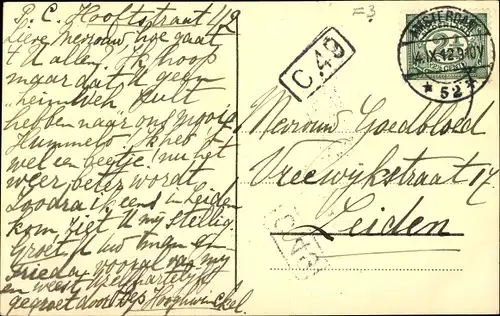 P. C. Hooftstraat 112
Lieve Mevrouw hoe gaat
't U allen. Ik hoop
maar dat U geen
"heimweh" zult
hebben naar ons mooie
Hummelo. Ik heb 't
wel een beetje! nu het
weer beter wordt
Zoodra ik eens in Leiden
kom ziet U mij stellig.
Groet U uw man en
vooral van mij
en weest U hartelijk
gegroet door Hooghwinkel.
=3
C.49
AMSTERDAM
IX.12.9-10V
* 52 *
Mevrouw Goedbloed
Vreewijkstraat 17
Leiden